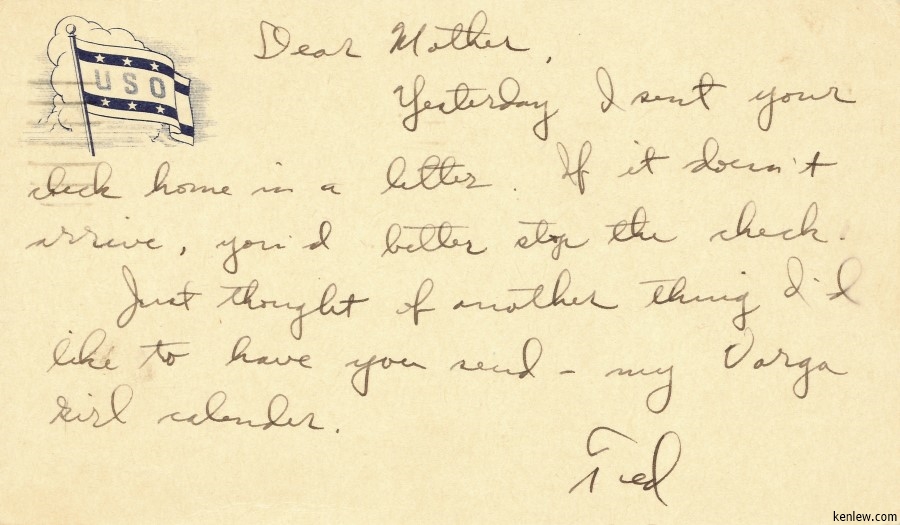 USO
Dear Mother,
Yesterday I sent your
check home in a letter. If it doesn't
arrive, you'd better stop the check.
Just thought of another thing I'd
like to have you send – my Varga
girl calender.
Ted
kenlew.com